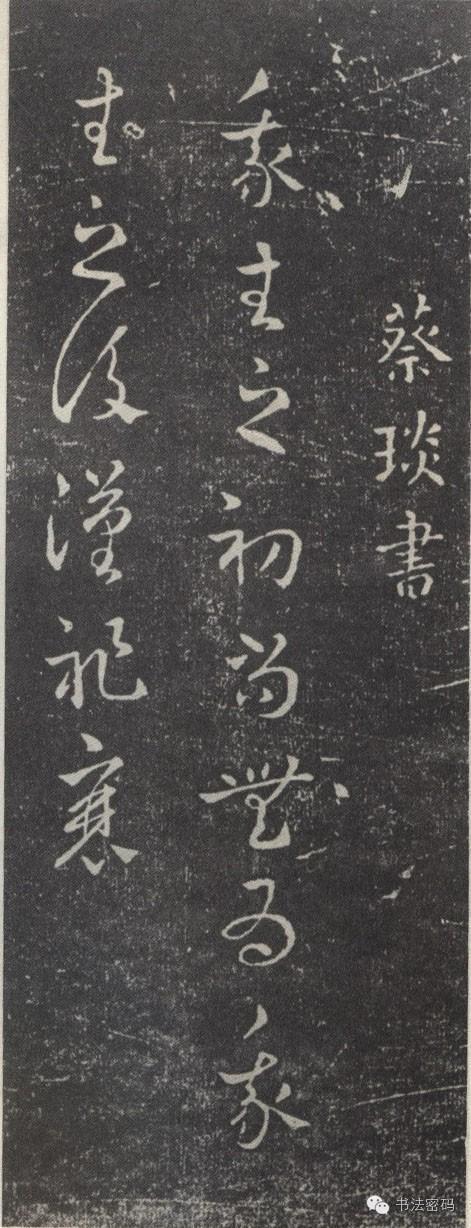 蔡琰書
我生之初尚無為我
生之後漢祚衰
书法密码